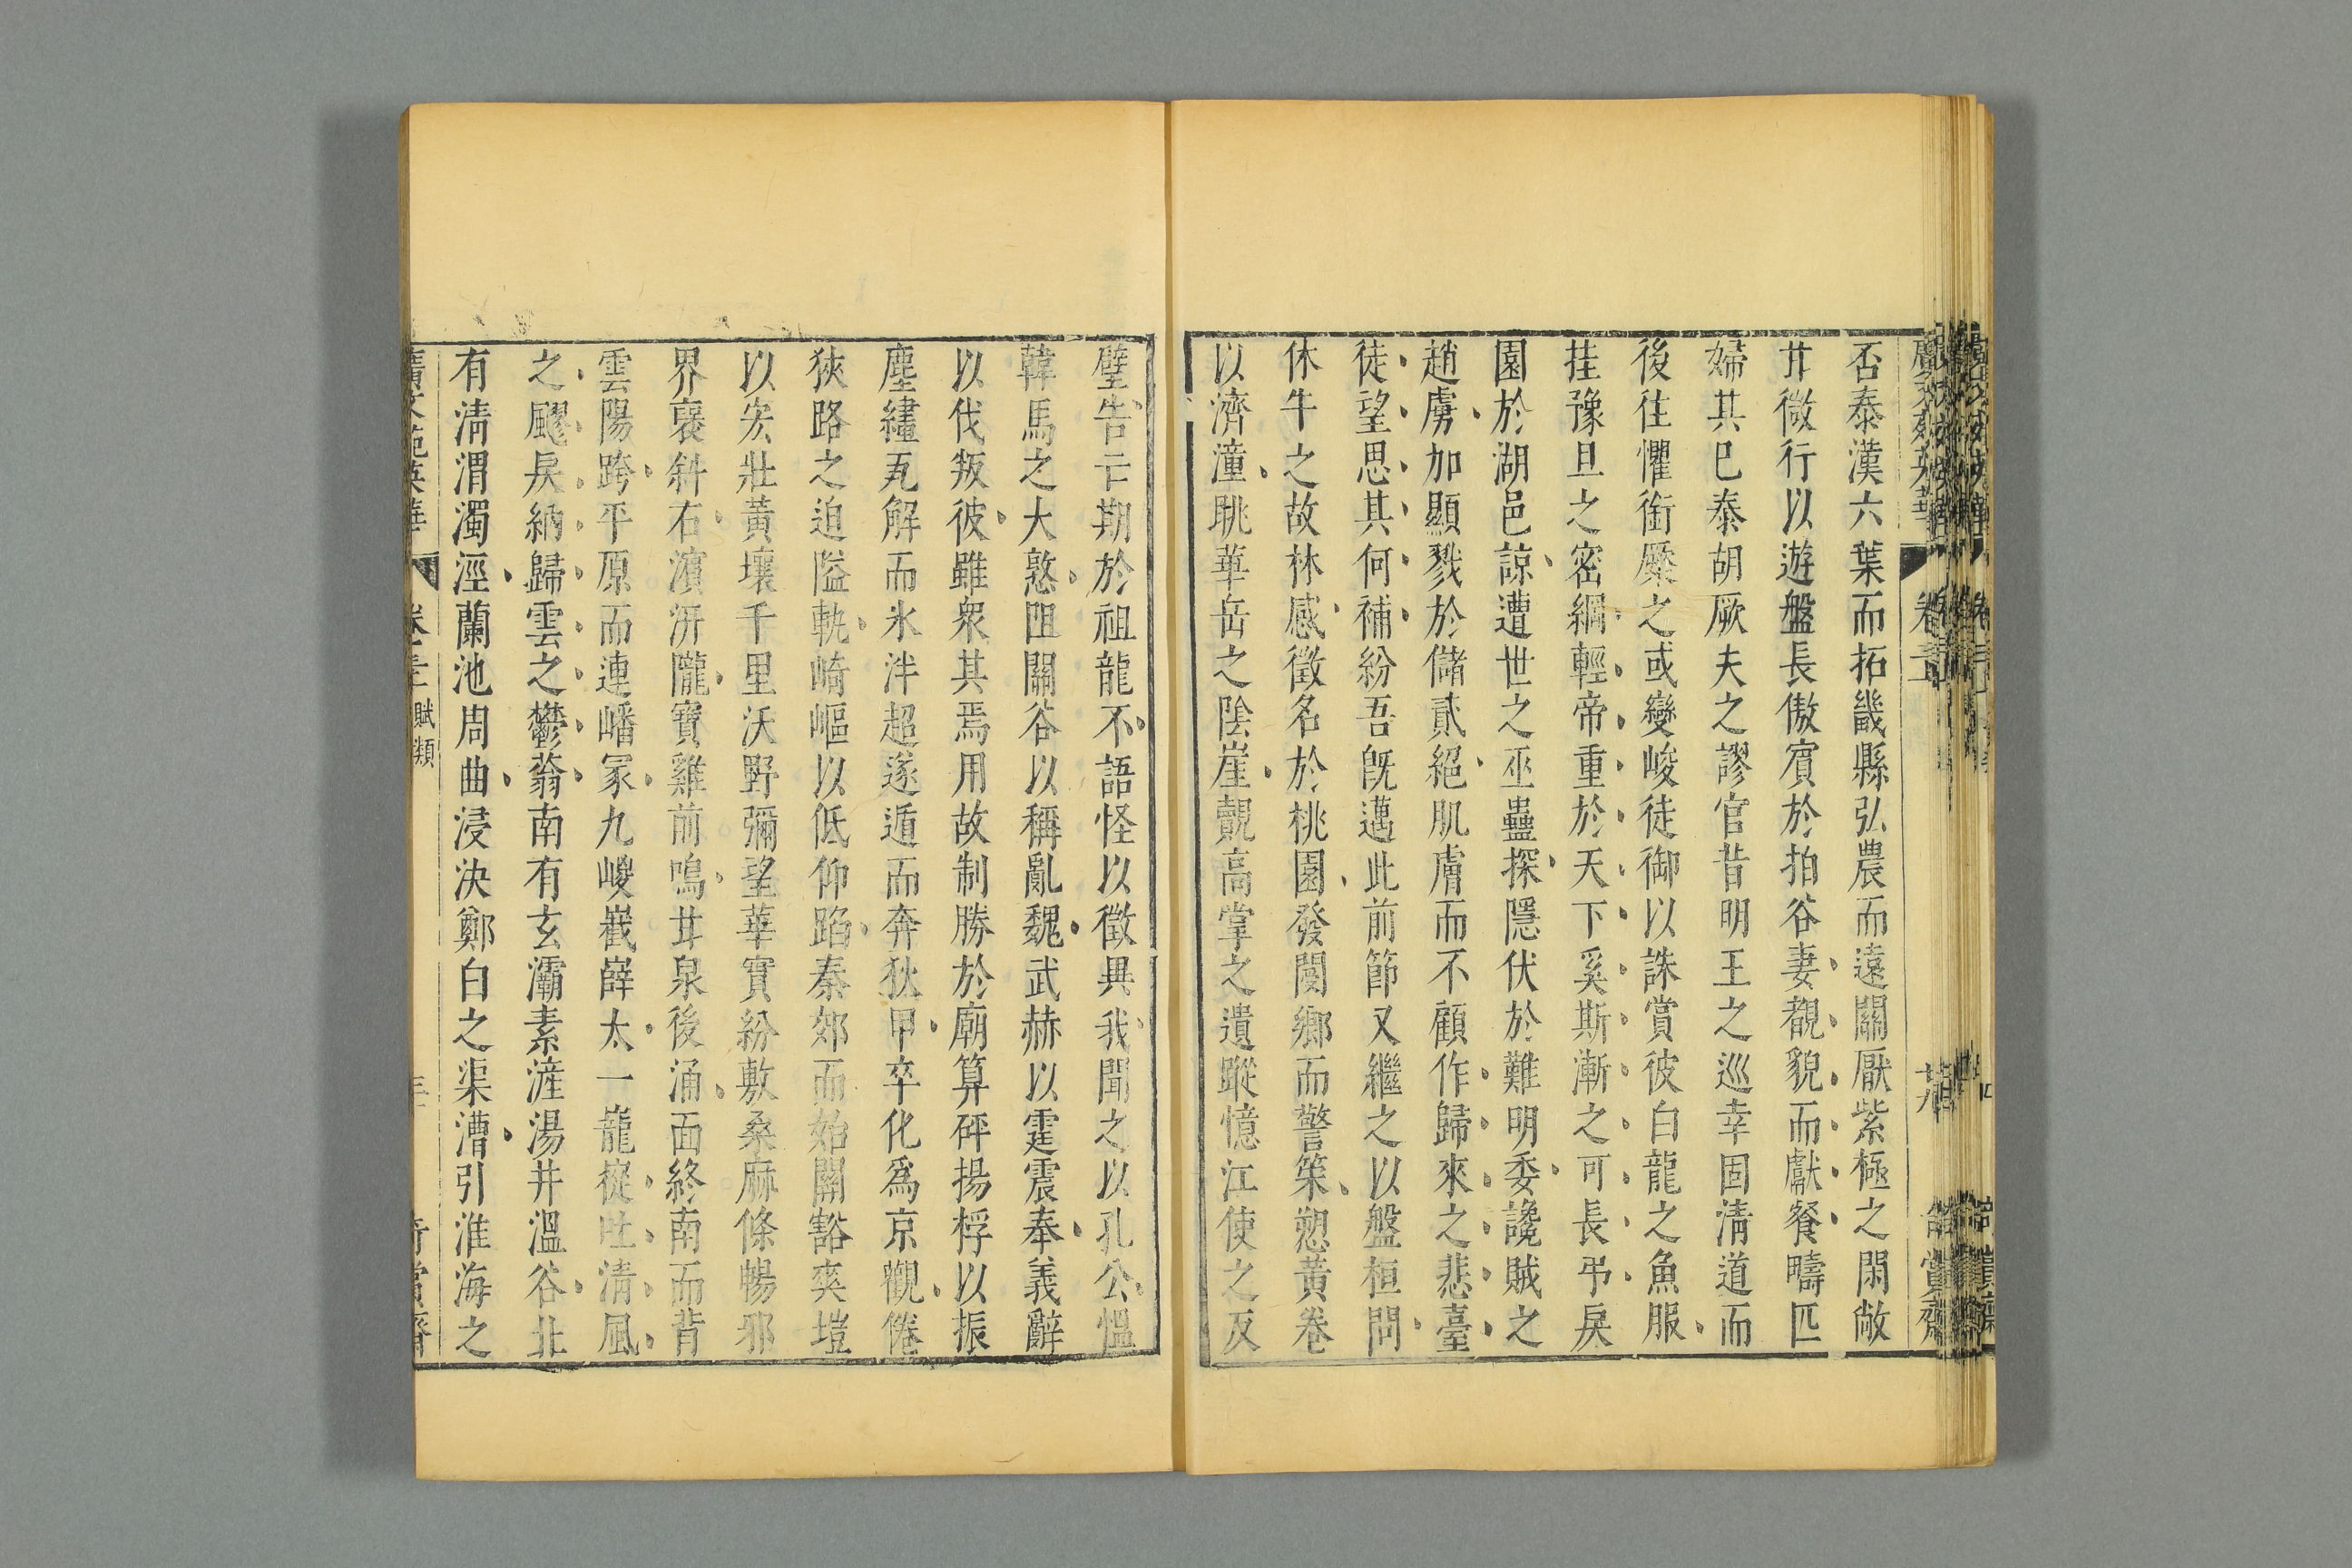 否泰漢六葉而拓畿縣弘農而遠關厭紫極之閑敞
甘微行以遊盤長傲賓於拍谷妻覩貌而獻餐疇匹
婦其巳泰胡厥夫之謬官昔明王之巡幸固清道而
後徃懼銜橜之或變峻徒御以誅賞彼白龍之魚服
挂豫且之密綱輕帝重於天下奚斯漸之可長弔戾
園於湖邑諒遭世之巫蠱探隱伏於難明委讒賊之
趙虜加顯戮於儲貳絕肌膚而不顧作歸來之悲臺
徒望思其何補紛吾旣邁此前節又繼之以盤桓問
休牛之故林感徵名於桃園發閿鄉而警策愬黃巷
以濟潼眺華岳之陰崖覿高掌之遺蹤憶江使之反
璧告亡期於祖龍不語怪以徵異我聞之以孔公慍
韓馬之大憝阻關谷以稱亂魏武赫以霆震奉義辭
以伐叛彼雖衆其焉用故制勝於廟算砰揚桴以振
塵繣瓦解而氷泮超遂遁而奔狄甲卒化爲京觀倦
狹路之迫隘軌崎嶇以低仰蹈秦郊而始闢豁爽塏
以宏壯黃壤千里沃野彌望華實紛敷桑麻條暢邪
界褒斜右濱汧隴寶雞前鳴甘泉後涌面終南而背
雲陽跨平原而連嶓冢九嵕嶻嶭太一巃嵸吐清風
之飂戾納歸雲之鬱蓊南有玄灞素滻湯井溫谷北
有清渭濁涇蘭池周曲浸決鄭白之渠漕引淮海之
賦類